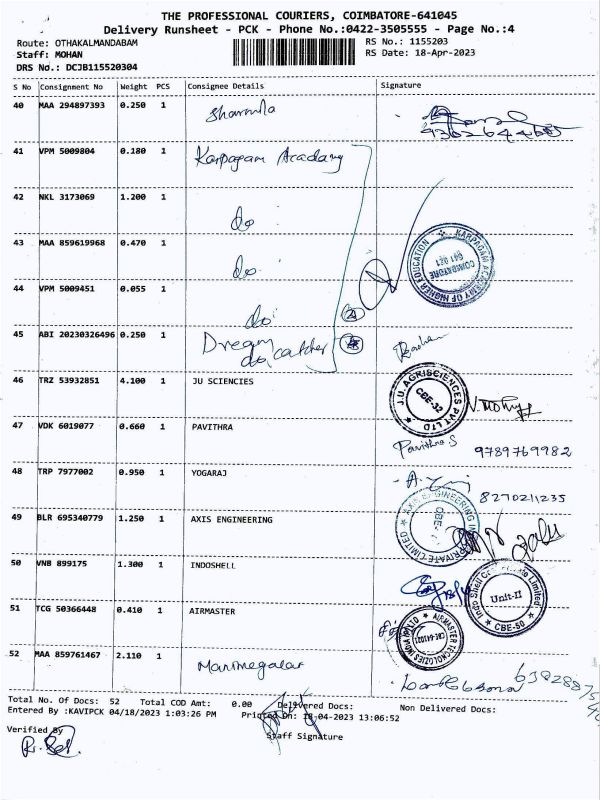 THE PROFESSIONAL COURIERS, COIMBATORE-641045
Delivery Runsheet - PCK - Phone No.:0422-3505555 - Page No.:4
Route: OTHAKALMANDABAM
RS No.: 1155203
Staff: MOHAN
RS Date: 18-Apr-2023
DRS No.: DCJB115520304
S No Consignment No Weight PCS Consignee Details Signature
40 MAA 294897393 0.250 1 Sharmila
41 VPM 5009804 0.180 1 Karpagam Academy
42 NKL 3173069 1.200 1 do
43 MAA 859619968 0.470 1 do
KARPAGAM ACADEMY OF HIGHER EDUCATION COIMBATORE 641 021
44 VPM 5009451 0.055 1 do
45 ABI 20230326496 0.250 1 Dream catcher
do
46 TRZ 53932851 4.100 1 JU SCIENCIES
J.U. AGRISCIENCES PVT LTD CBE-32
47 VDK 6019077 0.660 1 PAVITHRA Pavithra S 9789769982
48 TRP 7977002 0.950 1 YOGARAJ 8270211235
49 BLR 695340779 1.250 1 AXIS ENGINEERING
AXIS ENGINEERING PRIVATE LIMITED CBE
50 VNB 899175 1.300 1 INDOSHELL
Unit-II CBE-50
51 TCG 50366448 0.410 1 AIRMASTER
52 MAA 859761467 2.110 1 Manimegalai
Total No. Of Docs: 52 Total COD Amt: 0.00 Delivered Docs: Non Delivered Docs:
Entered By :KAVIPCK 04/18/2023 1:03:26 PM Printed On: 18-04-2023 13:06:52
Verified By
Staff Signature